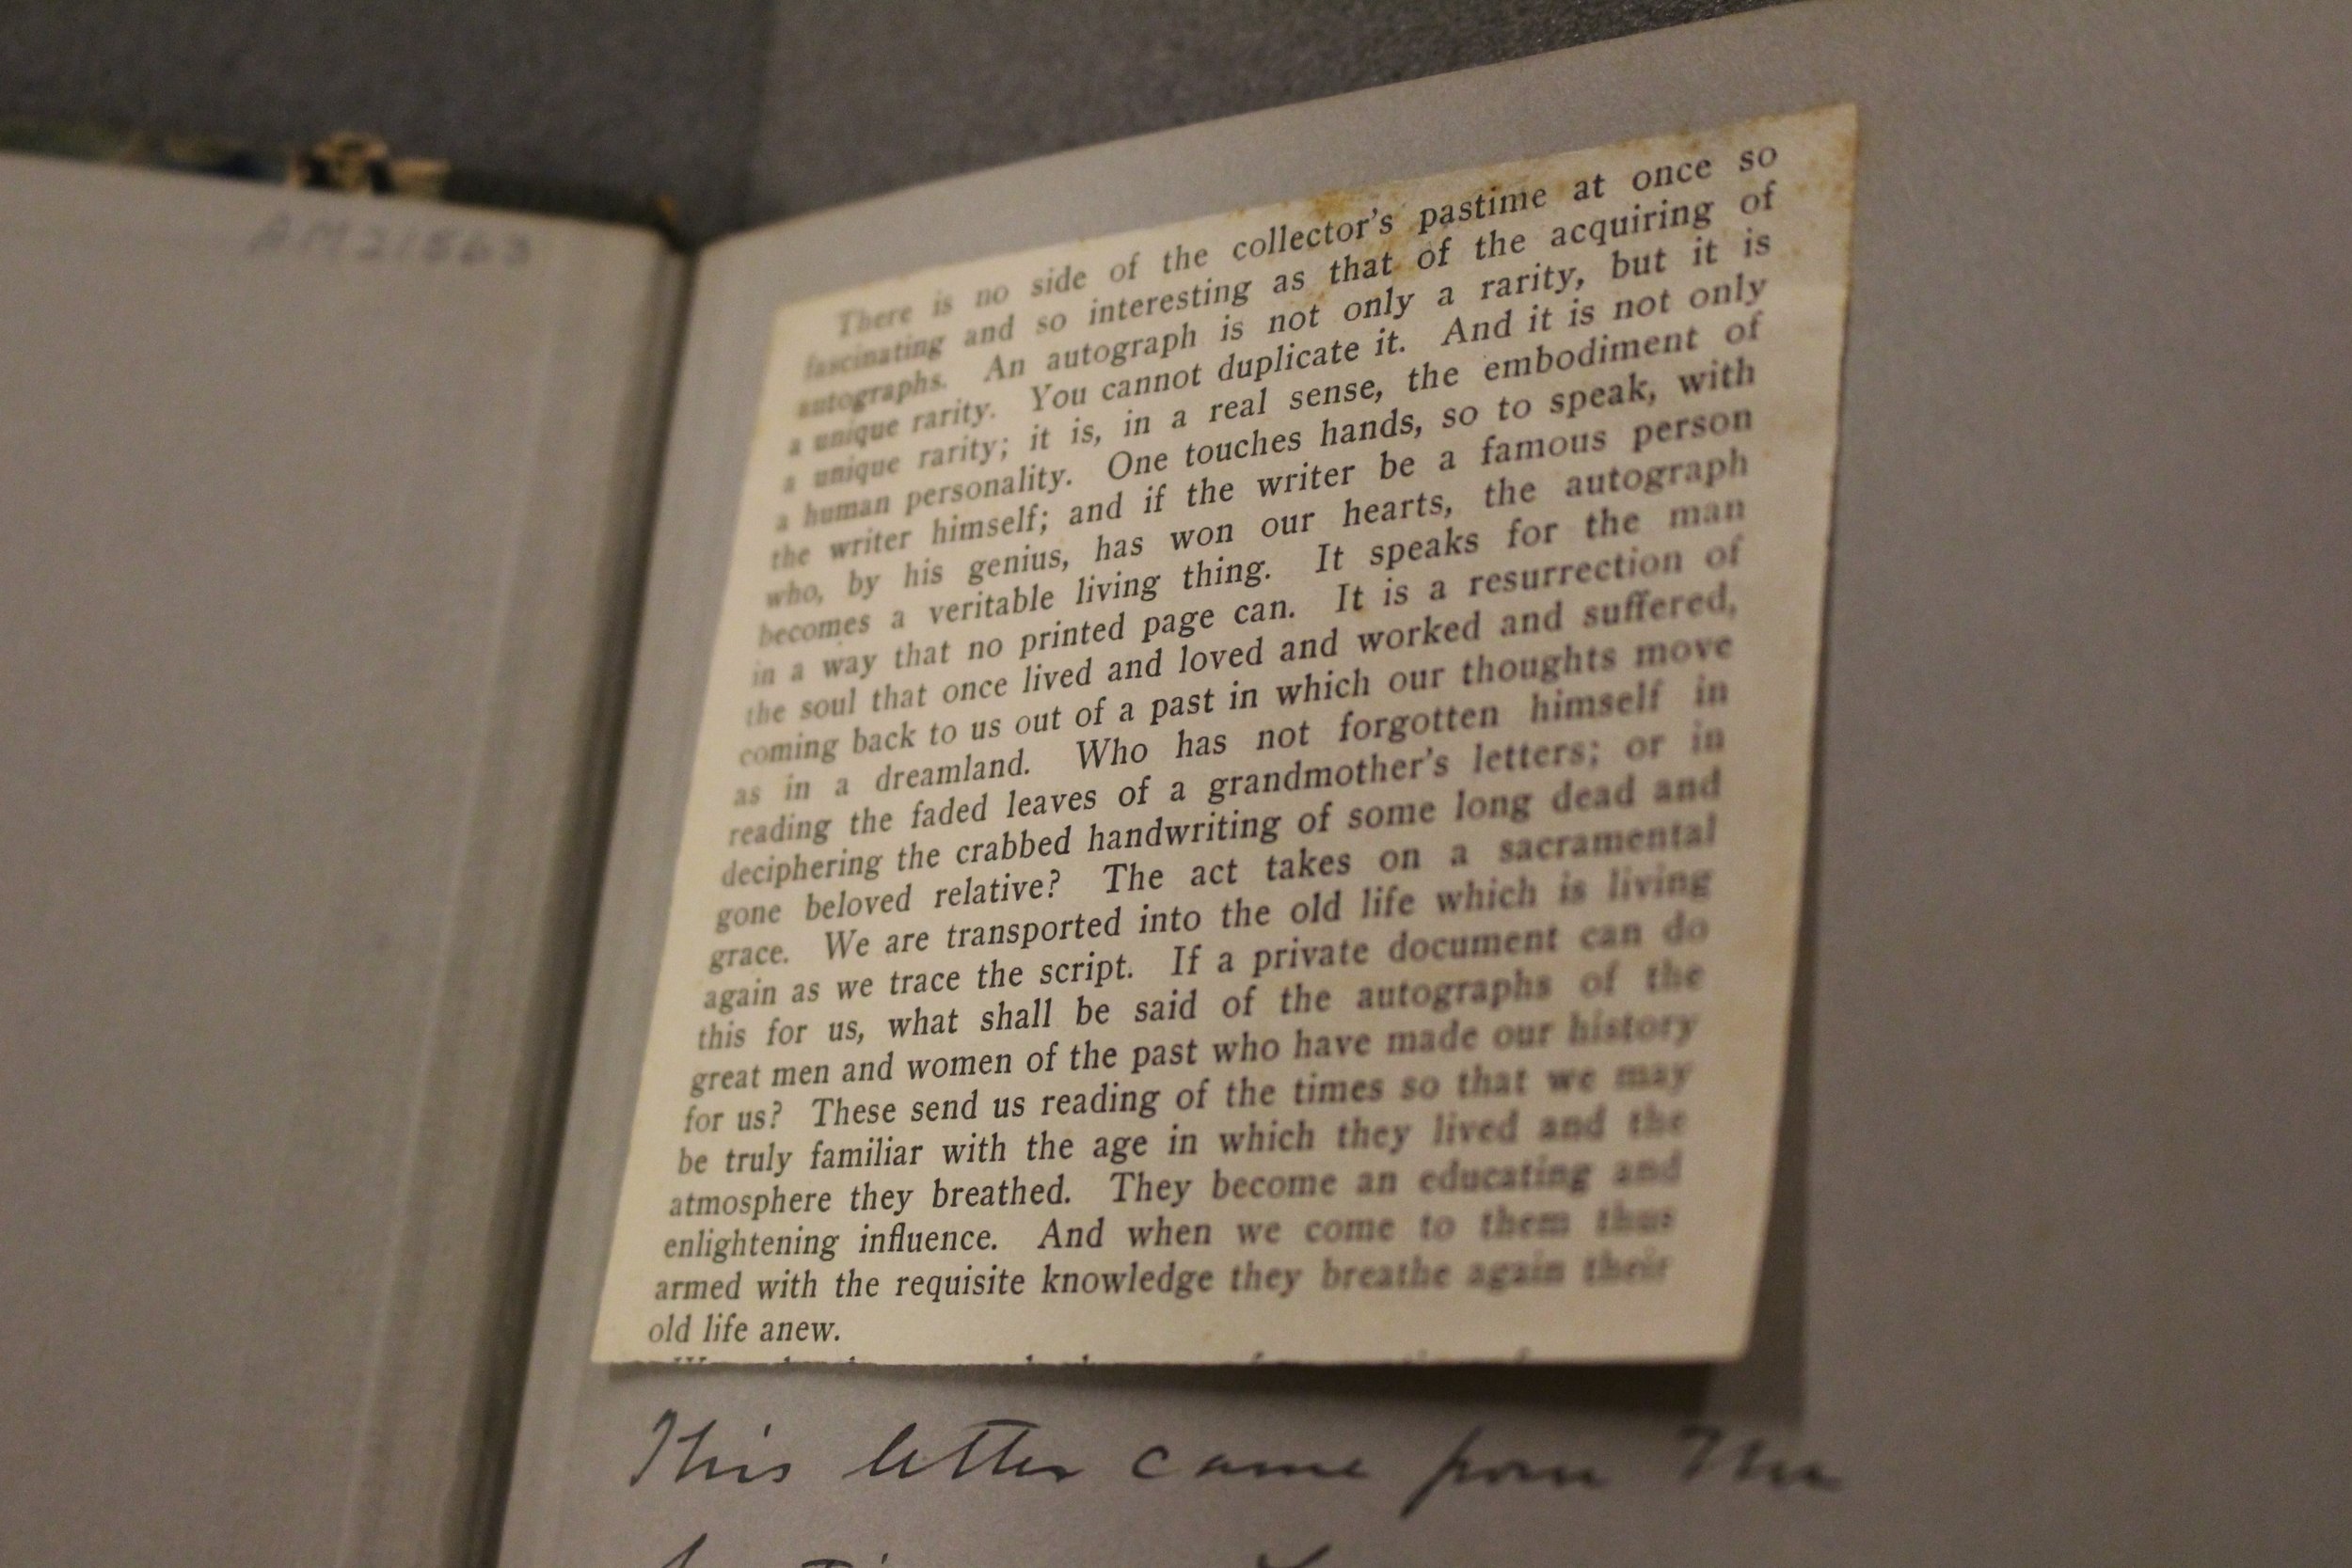 AM21563
There is no side of the collector's pastime at once so
fascinating and so interesting as that of the acquiring of
autographs. An autograph is not only a rarity, but it is
a unique rarity. You cannot duplicate it. And it is not only
a unique rarity; it is, in a real sense, the embodiment of
a human personality. One touches hands, so to speak, with
the writer himself; and if the writer be a famous person
who, by his genius, has won our hearts, the autograph
becomes a veritable living thing. It speaks for the man
in a way that no printed page can. It is a resurrection of
the soul that once lived and loved and worked and suffered,
coming back to us out of a past in which our thoughts move
as in a dreamland. Who has not forgotten himself in
reading the faded leaves of a grandmother's letters; or in
deciphering the crabbed handwriting of some long dead and
gone beloved relative? The act takes on a sacramental
grace. We are transported into the old life which is living
again as we trace the script. If a private document can do
this for us, what shall be said of the autographs of the
great men and women of the past who have made our history
for us? These send us reading of the times so that we may
be truly familiar with the age in which they lived and the
atmosphere they breathed. They become an educating and
enlightening influence. And when we come to them thus
armed with the requisite knowledge they breathe again their
old life anew.
This letter came from The